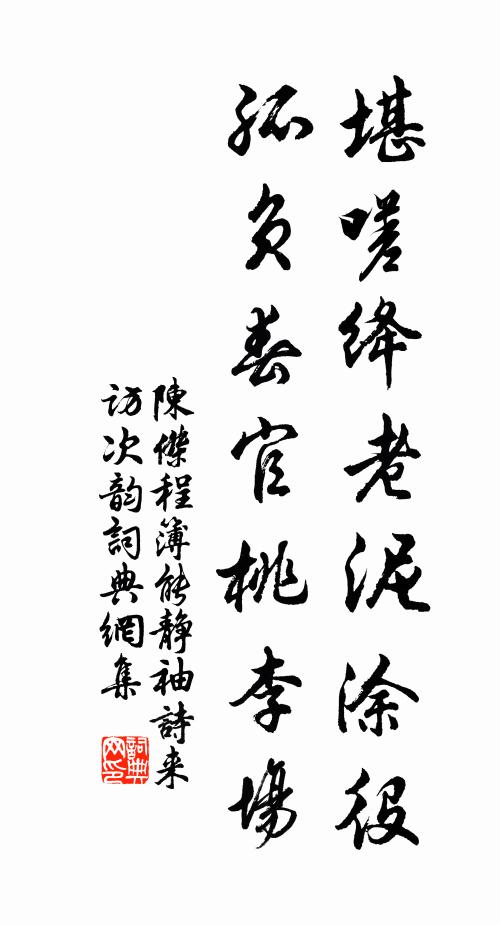 堪嗟绛老泥涂役
孤负春官桃李場
陳傑程簿能靜袖詩来
访次韵詞典網集
詞典網印